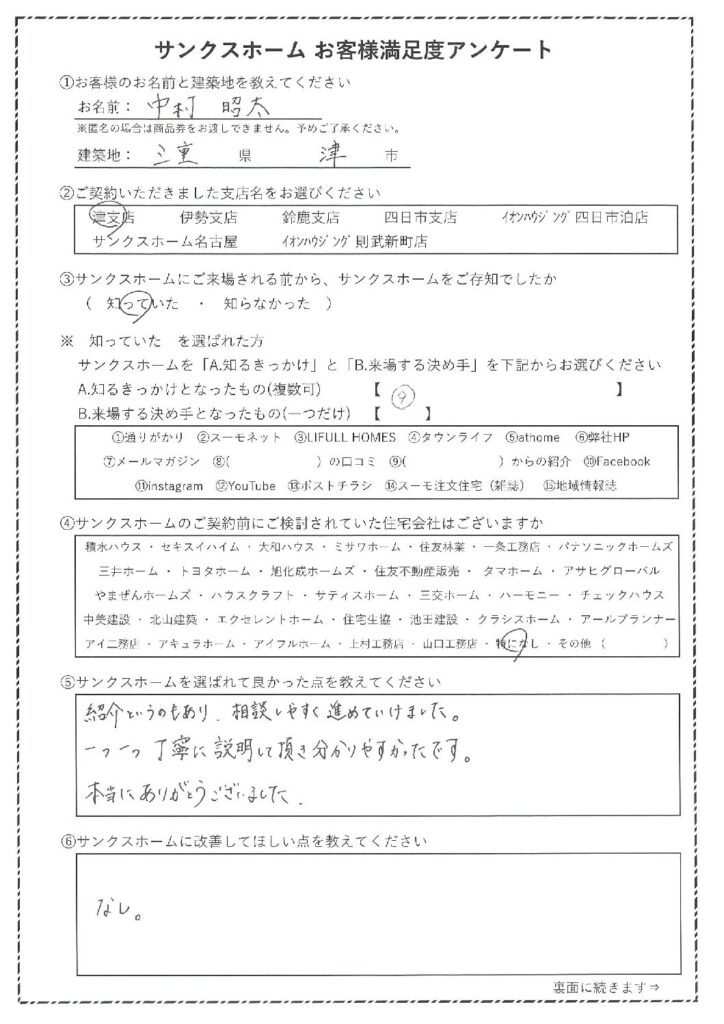 サンクスホーム お客様満足度アンケート
①お客様のお名前と建築地を教えてください
お名前： 中村 昭太
※匿名の場合は商品券をお渡しできません。予めご了承ください。
建築地： 三重 県 津 市
②ご契約いただきました支店名をお選びください
津支店 伊勢支店 鈴鹿支店 四日市支店 ｲｵﾝﾊｳｼﾞﾝｸﾞ四日市泊店
サンクスホーム名古屋 ｲｵﾝﾊｳｼﾞﾝｸﾞ則武新町店
③サンクスホームにご来場される前から、サンクスホームをご存知でしたか
（ 知っていた ・ 知らなかった ）
※ 知っていた を選ばれた方
サンクスホームを「A.知るきっかけ」と「B.来場する決め手」を下記からお選びください
A.知るきっかけとなったもの(複数可) 【 ⑨ 】
B.来場する決め手となったもの(一つだけ) 【 】
①通りがかり ②スーモネット ③LIFULL HOMES ④タウンライフ ⑤athome ⑥弊社HP
⑦メールマガジン ⑧( )の口コミ ⑨( )からの紹介 ⑩Facebook
⑪instagram ⑫YouTube ⑬ポストチラシ ⑭スーモ注文住宅（雑誌） ⑮地域情報誌
④サンクスホームのご契約前にご検討されていた住宅会社はございますか
積水ハウス・セキスイハイム・大和ハウス・ミサワホーム・住友林業・一条工務店・パナソニックホームズ
三井ホーム・トヨタホーム・旭化成ホームズ・住友不動産販売・タマホーム・アサヒグローバル
やまぜんホームズ・ハウスクラフト・サティスホーム・三交ホーム・ハーモニー・チェックハウス
中美建設・北山建築・エクセレントホーム・住宅生協・池田建設・クラシスホーム・アールプランナー
アイ工務店・アキュラホーム・アイフルホーム・上村工務店・山口工務店・特になし・その他（ ）
⑤サンクスホームを選ばれて良かった点を教えてください
紹介というのもあり、相談しやすく進めていけました。
一つ一つ丁寧に説明して頂き分かりやすかったです。
本当にありがとうございました.
⑥サンクスホームに改善してほしい点を教えてください
なし。
裏面に続きます⇒